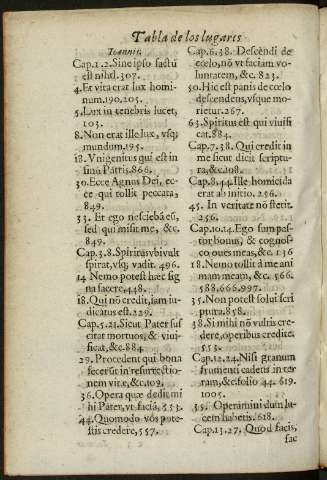 Tabla de los lugares
Ioannis.
Cap.1.2. Sine ipso factũ
est nihil. 307.
4. Et vita erat lux homi-
num. 190. 205.
5. Lux in tenebris lucet,
103.
8. Non erat ille lux, vsq;
mundum. 195.
18. Vnigenitus qui est in
sinu Patris. 866.
30. Ecce Agnus Dei, ec-
ce qui tollit peccata,
849.
33. Et ego nesciebã eũ,
sed qui misit me, &c.
849.
Cap.3.8. Spiritus vbi vult
spirat, vsq; vadit. 496.
14 Nemo potest hæc sig
na facere, 448.
18. Qui nõ credit, iam iu-
dicatus est. 229.
Cap.5.21. Sicut Pater sus
citat mortuos, & viui-
ficat, &c. 884.
29. Procedent qui bona
fecerũt in resurrectio-
nem vitæ, &c. 109.
36. Opera quæ dedit mi
hi Pater, vt faciã, 553.
44. Quomodo vos pote-
stis credere, 557.
Cap.6.38. Descẽdi de
cœlo, nõ vt faciam vo-
luntatem, &c. 823.
50. Hic est panis de cœlo
descendens, vsque mo-
rietur. 267.
63. Spiritus est qui viuifi
cat. 884.
Cap.7.38. Qui credit in
me sicut dicit scriptu-
ra, &c.
Cap.8.44. Ille homicida
erat ab initio. 256.
45. In veritate nõ stetit.
256.
Cap.10.14. Ego sum pas-
tor bonus, & cognos-
co oues meas, &c. 136
18. Nemo tollit à me ani
mam meam, &c. 566.
588. 666. 997.
35. Non potest solui scri
ptura. 858.
38. Si mihi nõ vultis cre-
dere, operibus credite.
553.
Cap.12.24. Nisi granum
frumenti cadens in ter
ram, &c. folio 44. 619.
1005.
35. Operamini dum lu-
cem habetis. 618.
Cap.13.27. Quod facis,
fac